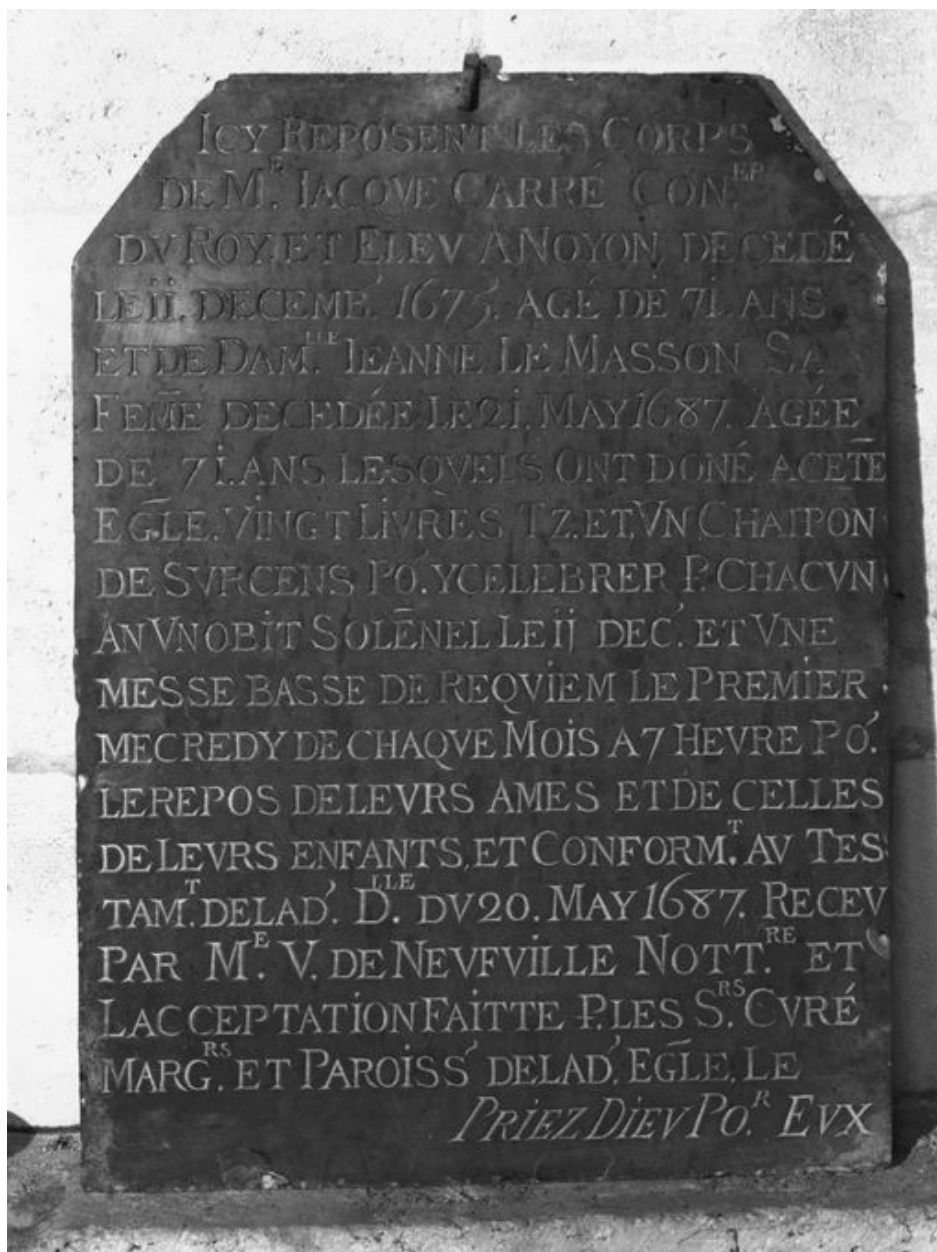 ICY REPOSENT LES CORPS
DE M.ᴱ IACQVE CARRÉ CON.ᴱᴿ
DV ROY. ET ELEV A NOYON, DECEDÉ
LE II. DECEMB.' 1675. AGÉ DE 71. ANS
ET DE DAM.ᴸᴸᴱ IEANNE LE MASSON SA
FEM̄E DECEDÉE LE 21. MAY 1687. AGÉE
DE 71. ANS LESQVELS ONT DONÉ A CET̄E
EḠLE. VINGT LIVRES TZ. ET VN CHAPPON
DE SVRCENS PO'. Y CELEBRER P. CHACVN
AN VN OBIT SOLEN̄EL LE IJ DEC'. ET VNE
MESSE BASSE DE REQVIEM LE PREMIER
MECREDY DE CHAQVE MOIS A 7 HEVRE PO'.
LE REPOS DE LEVRS AMES ET DE CELLES
DE LEVRS ENFANTS, ET CONFORM.ᵀ AV TES
TAM.ᵀ DE LAD'. D.ᴸᴸᴱ DV 20. MAY 1687. RECEV
PAR M.ᴱ V. DE NEVFVILLE NOTT.ᴿᴱ ET
LACCEPTATION FAITTE P. LES S.ᴿˢ CVRÉ
MARG.ᴿˢ ET PAROISS' DE LAD'. EḠLE, LE
PRIEZ DIEV PO.ᴿ EVX